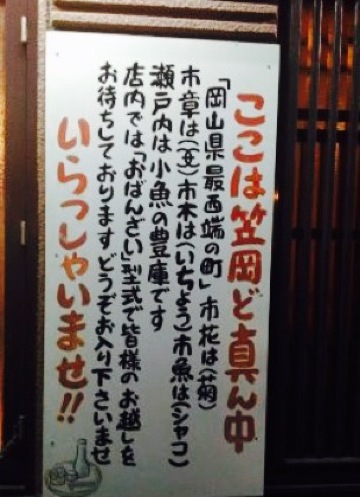 ここは笠岡ど真ん中
「岡山県最西端の町」市花は(菊)
市章は(笠)市木は(いちょう)市魚は(シャコ)
瀬戸内は小魚の豊庫です
店内では「おばんざい」型式で皆様のお越しを
お待ちしております どうぞお入り下さいませ
いらっしゃいませ!!